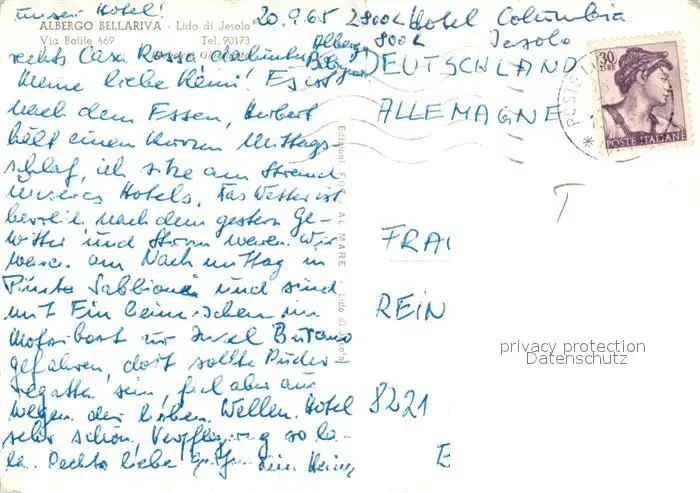 Unser Hotel! 20.9.65 2800 L Hotel Columbia
800 L Jesolo
ALBERGO BELLARIVA - Lido di Jesolo
Via Bafile 469 Tel. 90173
rechts Casa Rossa dahinter Albergo
Meine liebe Reni! Es ist
nach dem Essen, Herbert
hält einen kurzen Mittags-
schlaf, ich sitze am Strand
unseres Hotels. Das Wetter ist
herrlich nach dem gestern Ge-
witter und Sturm waren. Wir
waren am Nachmittag in
Punta Sabbione und sind
mit Einheimischen im
Motorboot zur Insel Burano
gefahren, dort sollte Ruder-
regatta sein, fiel aber aus
wegen der hohen Wellen. Hotel
sehr schön, Verpflegung so la-
la. Recht liebe Grüße dein Heinz
Edizioni FUGA AL MARE - Lido di Jesolo
DEUTSCHLAND
ALLEMAGNE
30
LIRE
POSTE ITALIANE
T
FRA
REIN
8221
E
privacy protection
Datenschutz